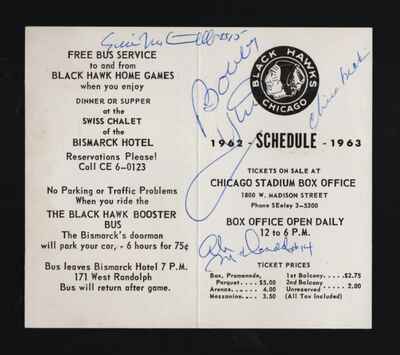 FREE BUS SERVICE
to and from
BLACK HAWK HOME GAMES
when you enjoy
DINNER OR SUPPER
at the
SWISS CHALET
of the
BISMARCK HOTEL
Reservations Please!
Call CE 6-0123
No Parking or Traffic Problems
When you ride the
THE BLACK HAWK BOOSTER
BUS
The Bismarck's doorman
will park your car, - 6 hours for 75¢
Bus leaves Bismarck Hotel 7 P.M.
171 West Randolph
Bus will return after game.
BLACK HAWKS
CHICAGO
Bobby
1962 - SCHEDULE - 1963
TICKETS ON SALE AT
CHICAGO STADIUM BOX OFFICE
1800 W. MADISON STREET
Phone SEeley 3-5300
BOX OFFICE OPEN DAILY
12 to 6 P.M.
Ab McDonald #14
TICKET PRICES
Box, Promenade,
Parquet....$5.00
Arena...... 4.00
Mezzanine.... 3.50
1st Balcony.....$2.75
2nd Balcony
Unreserved ..... 2.00
(All Tax Included)